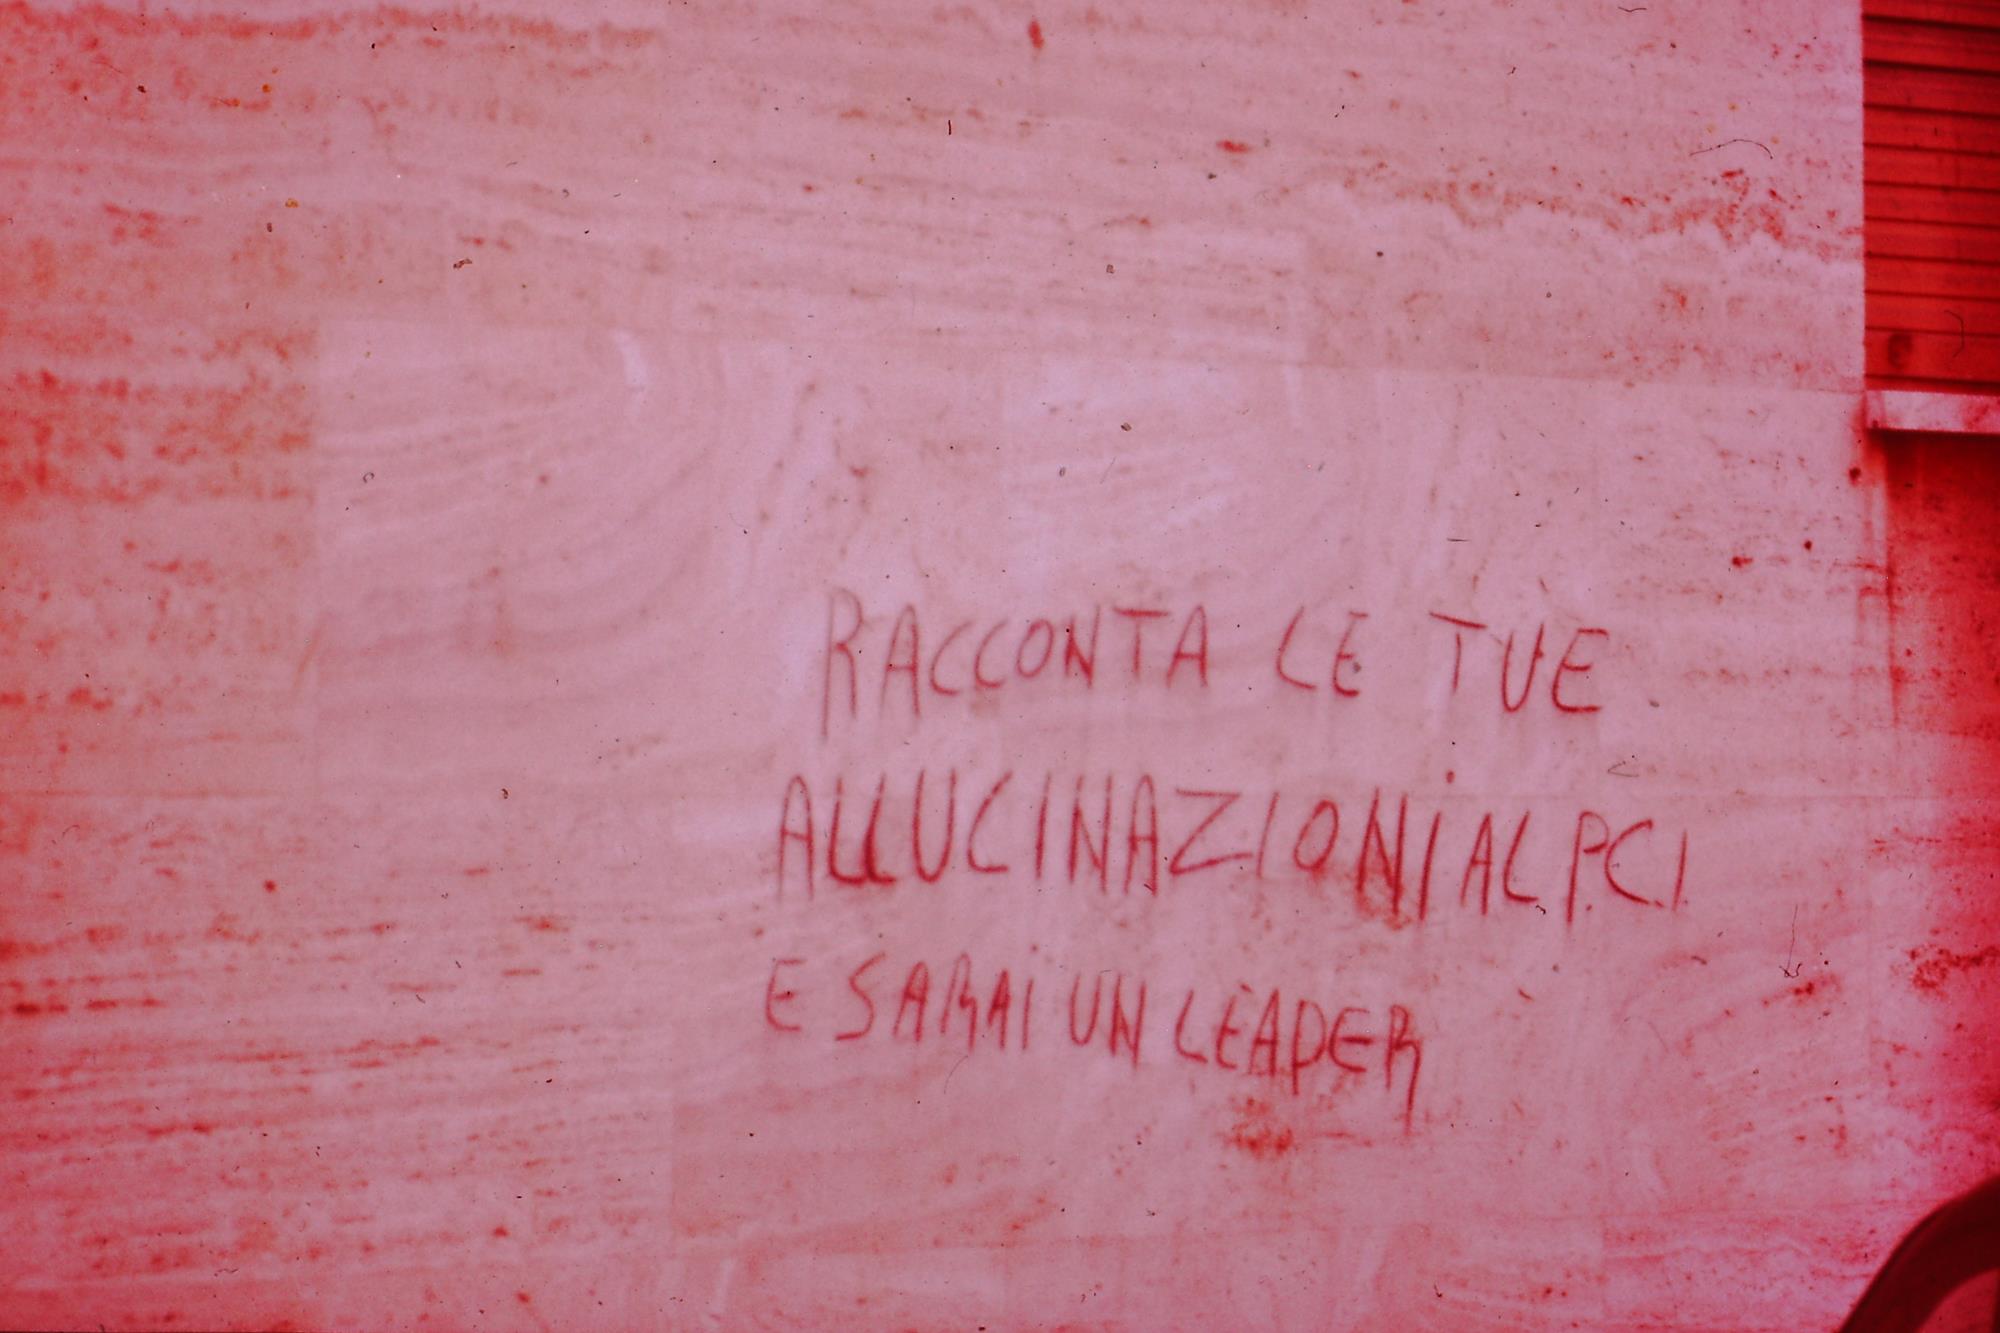 RACCONTA LE TUE
ALLUCINAZIONI AL P.C.I
E SARAI UN LEADER